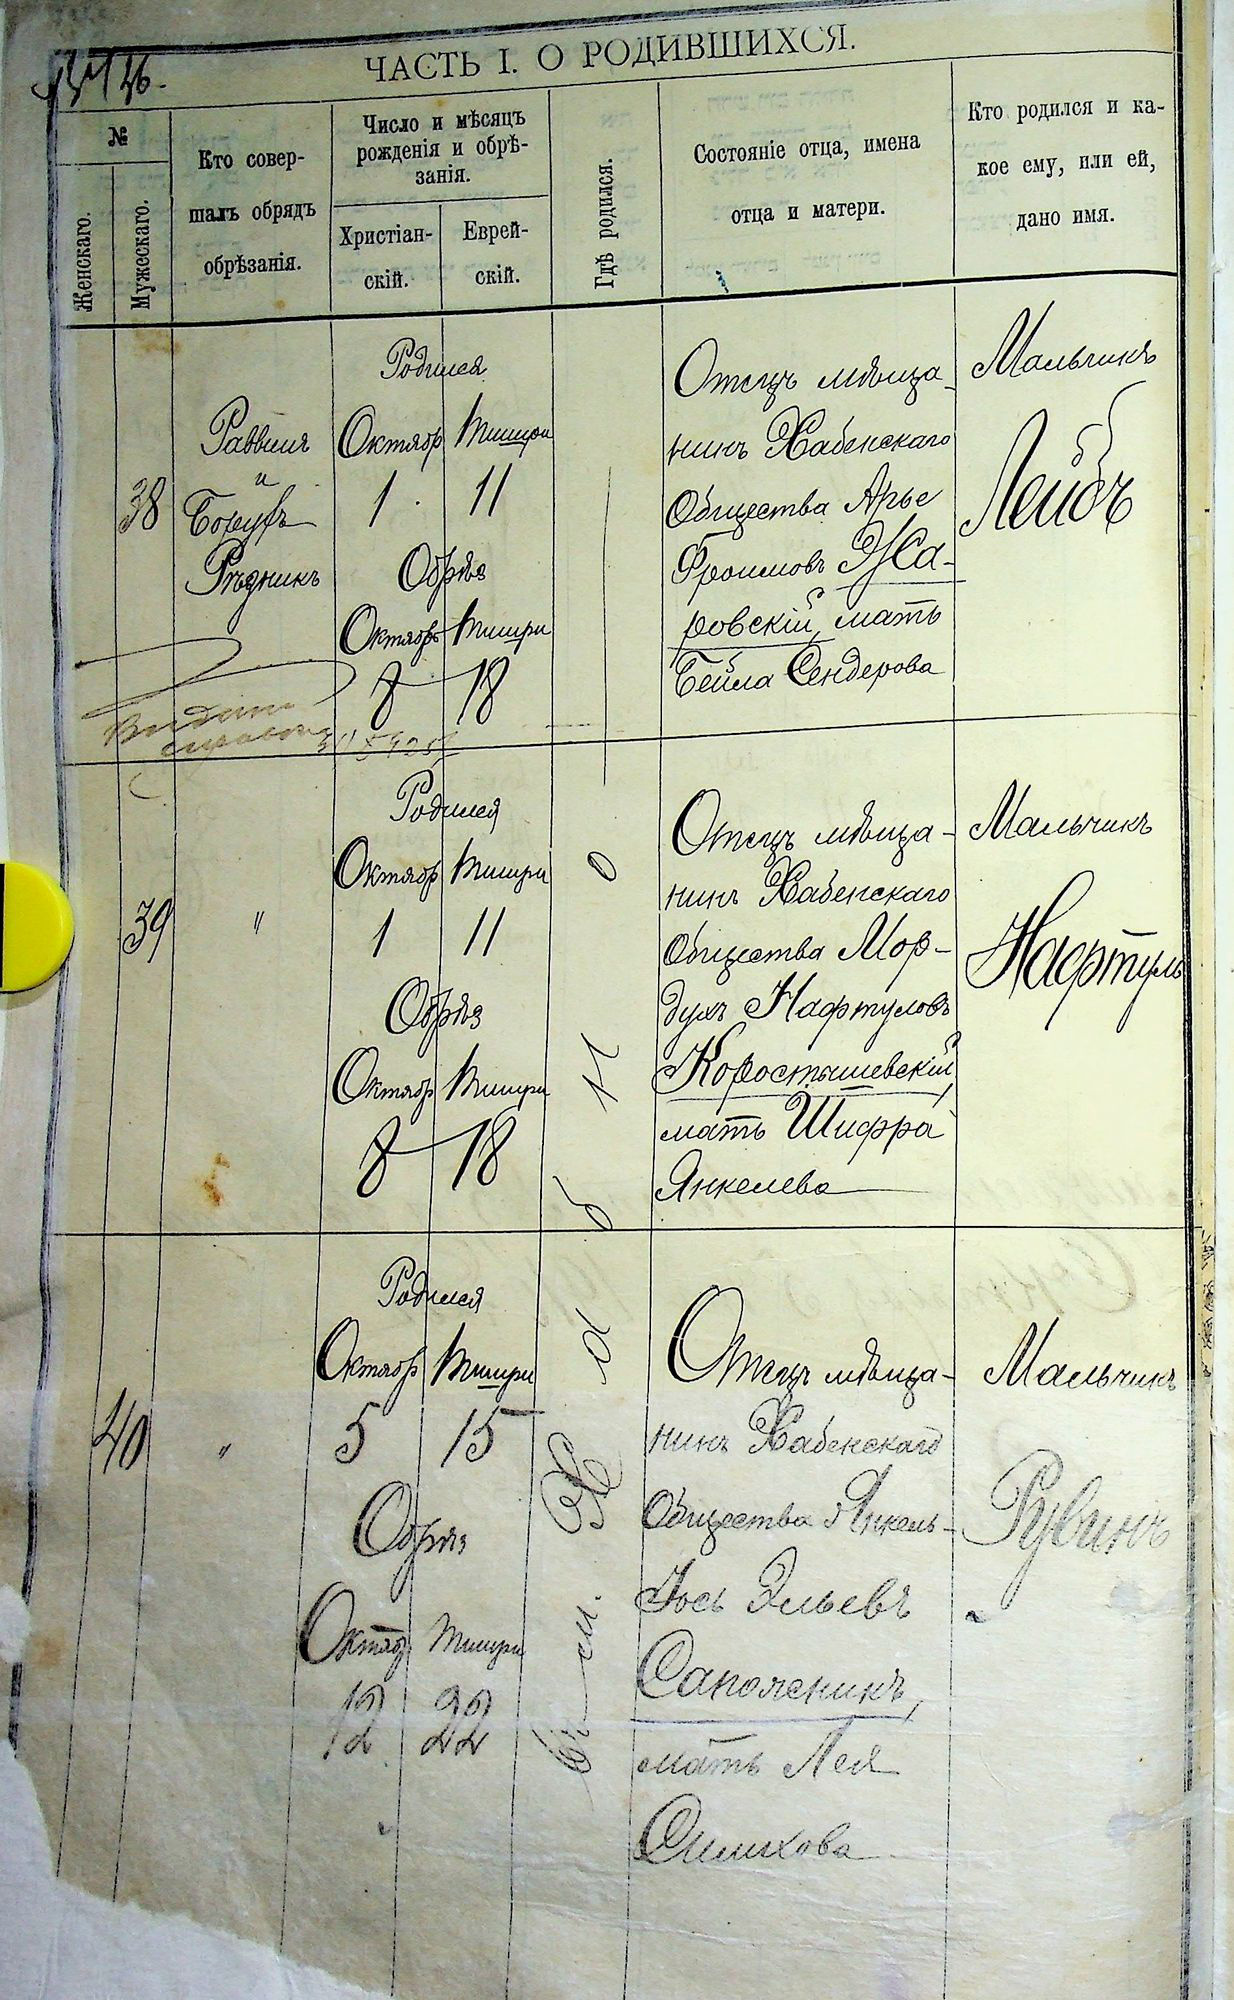 ЧАСТЬ I. О РОДИВШИХСЯ.
№
Женскаго.
Мужескаго.
Кто совер-
шалъ обрядъ
обрѣзанія.
Число и мѣсяцъ
рожденія и обрѣ-
занія.
Христіан-
скій.
Еврей-
скій.
Гдѣ родился.
Состояніе отца, имена
отца и матери.
Кто родился и ка-
кое ему, или ей,
дано имя.
38
Раввинъ
и
Борухъ
Рѣзникъ
Родился
Октябр Тишри
1 11
Обрѣз
Октябр Тишри
8 18
Отецъ мѣща-
нинъ Хабенскаго
Общества Арье
Фроимовъ
ровскій, мать
Бейла Сендерова
Мальчикъ
Лейбъ
39
"
Родился
Октябр Тишри
1 11
Обрѣз
Октябр Тишри
8 18
Отецъ мѣща-
нинъ Хабенскаго
Общества Мор-
духъ Нафтуловъ
Коростышевскій,
мать Шифра
Янкелева
Мальчикъ
Нафтуль
40
"
Родился
Октябр Тишри
5 15
Обрѣз
Октяб Тишри
12 22
Въ м. Хабно
Отецъ мѣща-
нинъ Хабенскаго
Общества Янкель-
Іось Эльевъ
Сапожникъ,
мать Лея
Симхова
Мальчикъ
Рувинъ